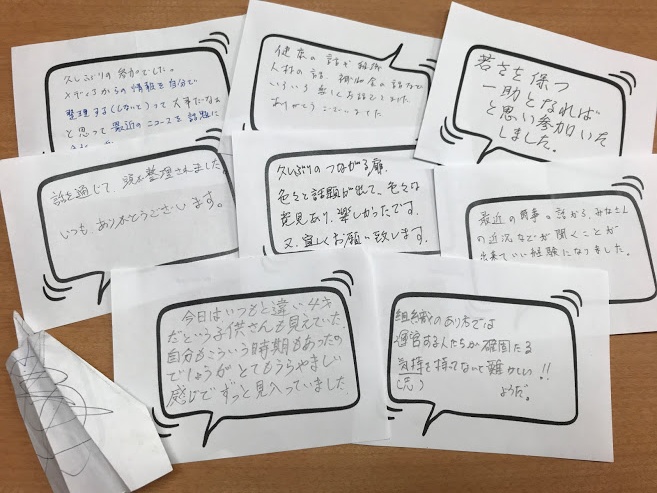 久しぶりの参加でした。
メディアからの情報を自分で
整理する(しないと)って大事だなぁ
と思って最近のニュースを話題に
健康の話や組織
人材の話、補助金の話など
いろいろ楽しくお話できました
ありがとうございました
若さを保つ
一助となれば
と思い参加いた
しました。
話を通じて、頭が整理されました
いつも、ありがとうございます。
久しぶりのつながる扉、
色々と話題が出て、色々な
発見あり、楽しかったです。
又、宜しくお願い致します。
最近の関事の話から、みなさん
の近況などが聞くことが
出来ていい経験になりました。
今日はいつもと違い4才
だという子供さんも見えていた。
自分もこういう時期もあったの
でしょうがとてもうらやましい
感じでずっと見入っていました
組織のあり方では
運営する人たちが確固たる
気持を持ってないと難かしい!!
(元)
ようだ。